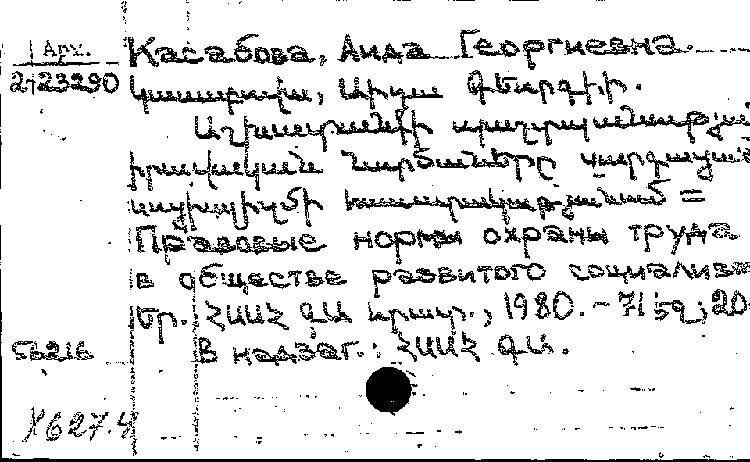 Арх.
2-23290
Касабова, Аида Георгиевна.
Կասաբովա, Աիդա Գեորգիի.
Աշխատանքի պաշտպանության
իրավական նորմաները զարգացած
սոցիալիզմի հասարակությունում =
Правовые нормы охраны труда
в обществе развитого социализ
Եր. ՀՍՍՀ ԳԱ հրատ., 1980. – 71 էջ; 20
56216
В надзаг.: ՀՍՍՀ ԳԱ.
X627.4